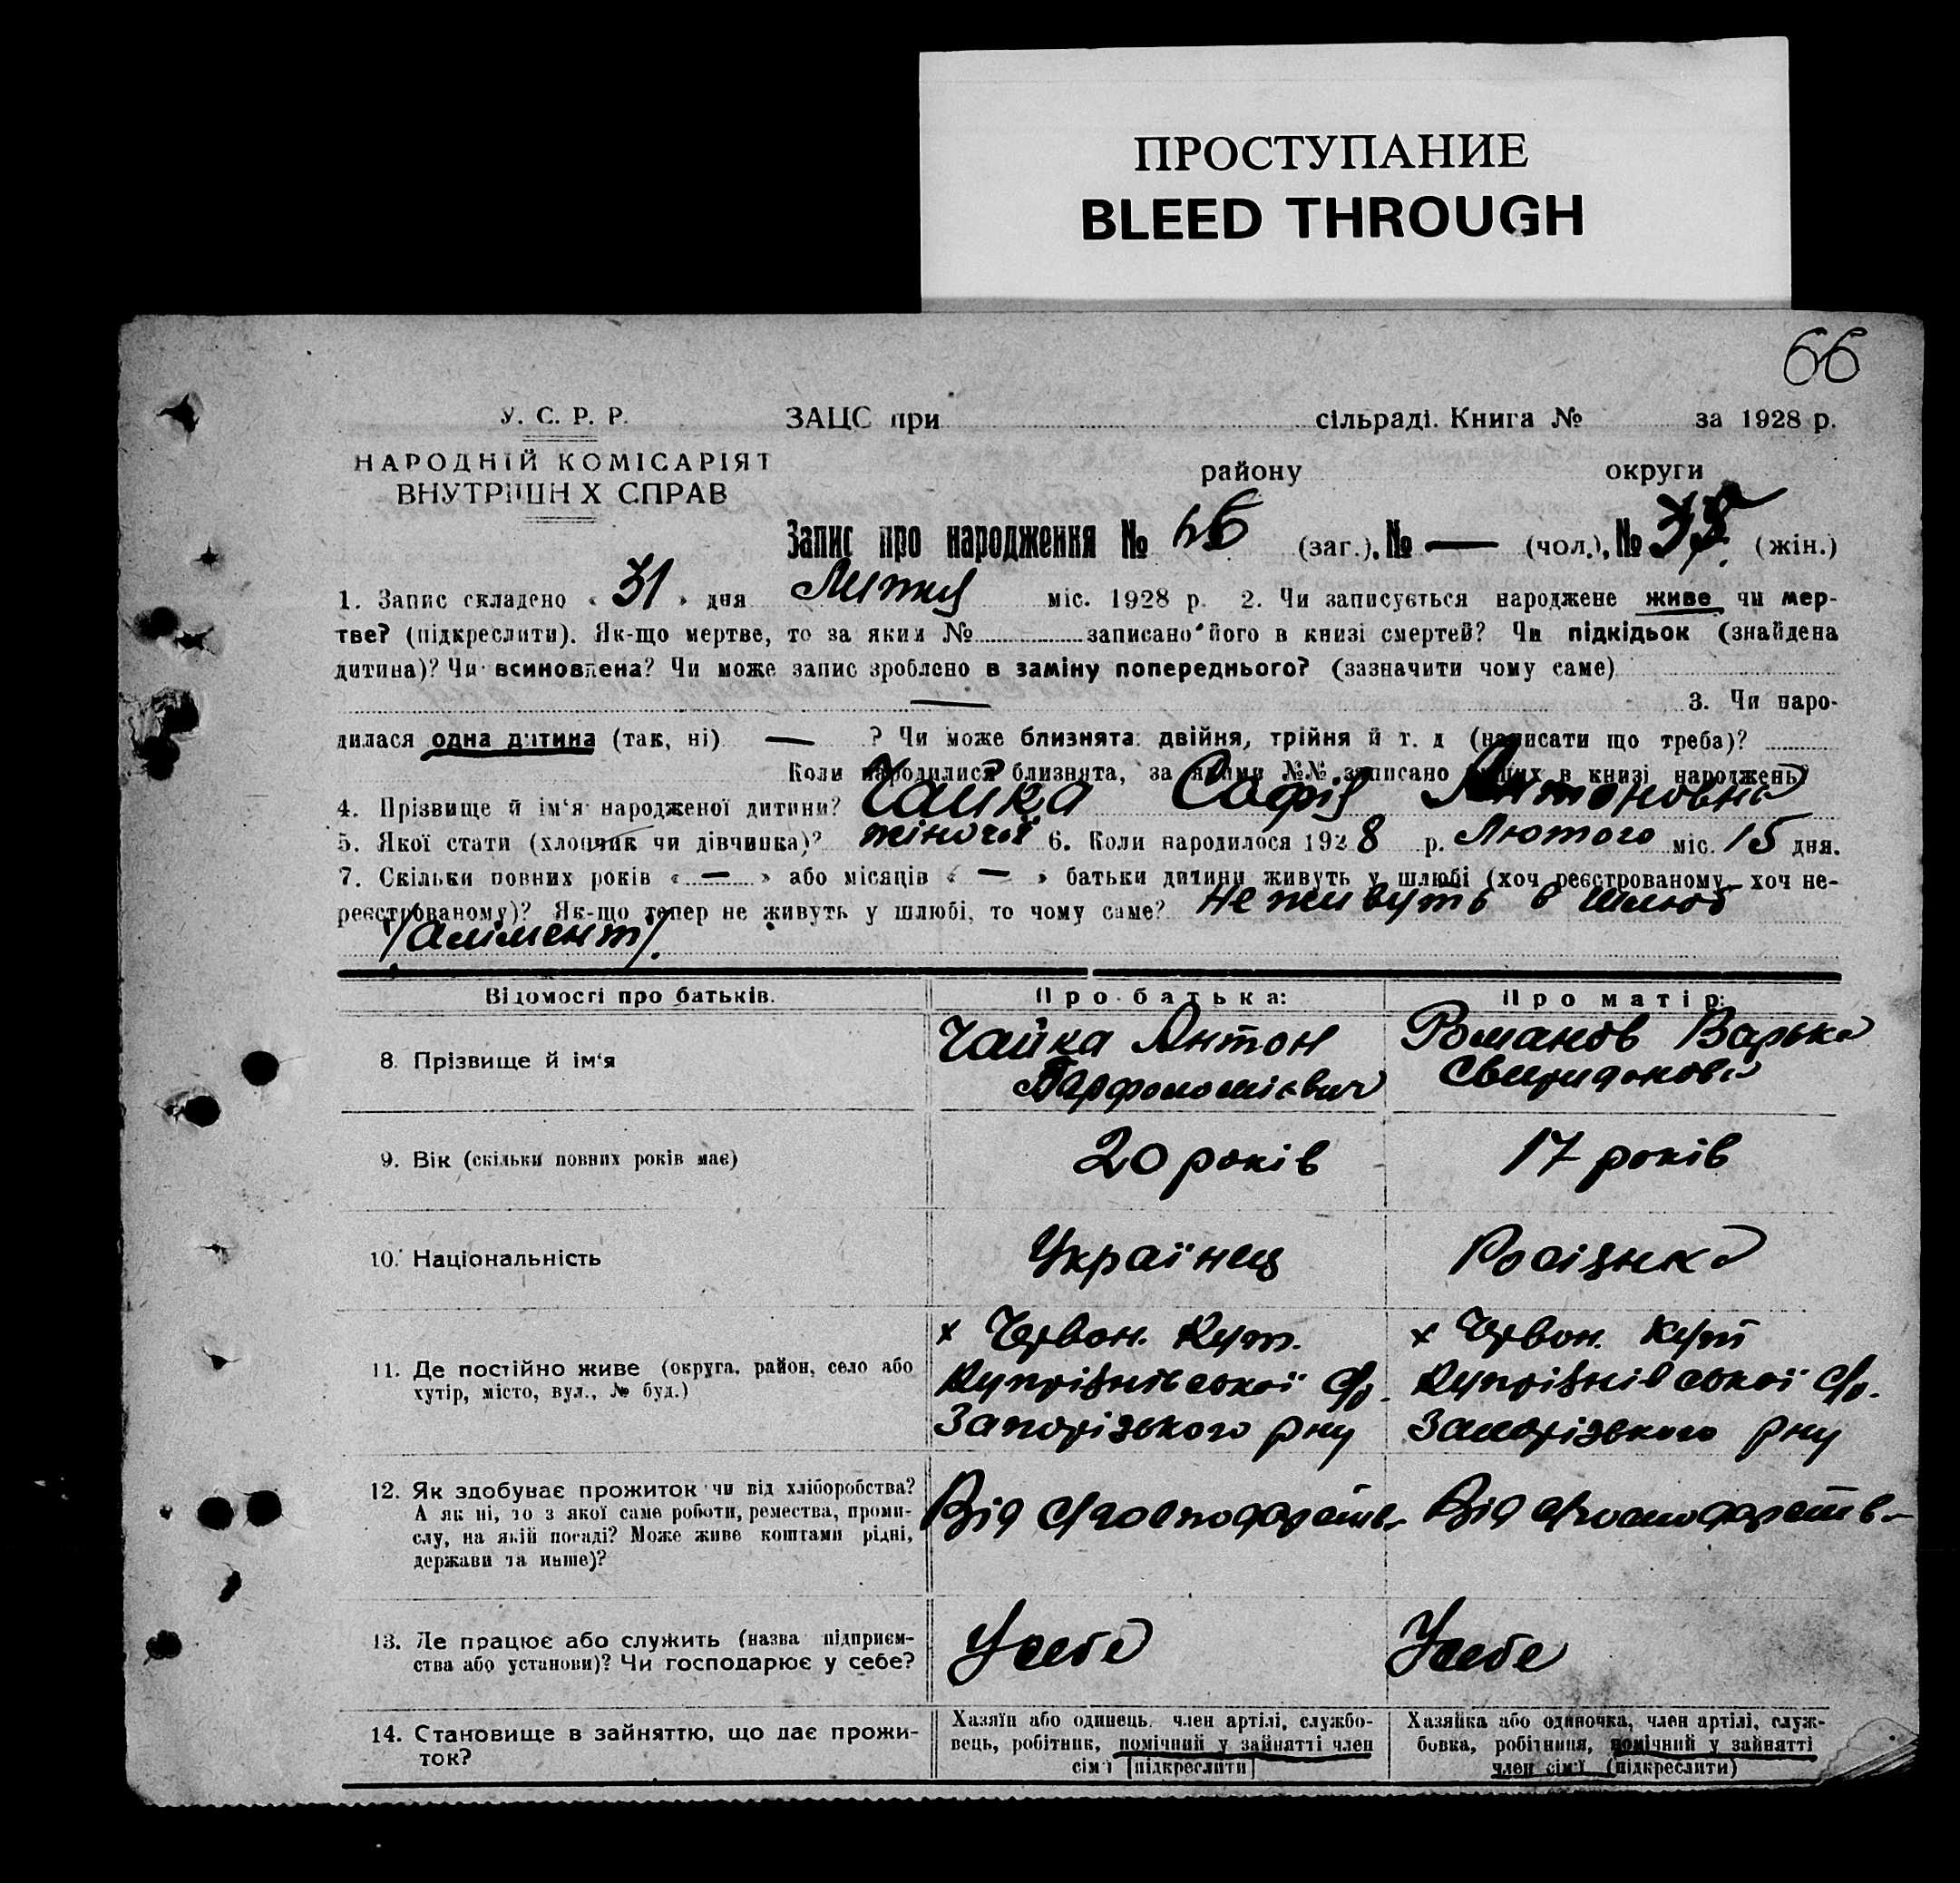 ПРОСТУПАНИЕ
BLEED THROUGH
66
У. С. Р. Р.
НАРОДНІЙ КОМІСАРІЯТ
ВНУТРІШН Х СПРАВ
ЗАЦС при сільраді. Книга № за 1928 р.
району округи
Запис про народження № 66 (заг.), № — (чол.), № (жін.)
1. Запис складено « 31 » дня Липня міс. 1928 р. 2. Чи записується народжене живе чи мер-
тве? (підкреслити). Як-що мертве, то за яким № записано його в книзі смертей? Чи підкідьок (знайдена
дитина)? Чи всиновлена? Чи може запис зроблено в заміну попереднього? (зазначити чому саме)
— 3. Чи наро-
дилася одна дитина (так, ні) — ? Чи може близнята: двійня, трійня й т. д (написати що треба)?
Коли народилися близнята, за якими №№ записано інших в книзі народжень?
4. Прізвище й ім'я народженої дитини? Чайка Софія Антоновна
5. Якої стати (хлопчик чи дівчинка)? жіночої 6. Коли народилося 1928 р. Лютого міс. 15 дня.
7. Скільки повних років « — » або місяців « — » батьки дитини живуть у шлюбі (хоч реєстрованому, хоч не-
реєстрованому)? Як-що тепер не живуть у шлюбі, то чому саме? не живуть в шлюб
/алімент/.
Відомості про батьків.
Про батька:
Про матір:
8. Прізвище й ім'я
Чайка Антон
Парфономієвич
Романов Варька
Свиридонова
9. Вік (скільки повних років має)
20 років
17 років
10. Національність
Українец
Росіянка
11. Де постійно живе (округа, район, село або
хутір, місто, вул., № буд.)
х Червон. Кут.
Купріянівської с/р.
Запорізького рну
х Червон. Кут
Купріянівської с/р.
Запорізького рну
12. Як здобуває прожиток чи від хліборобства?
А як ні, то з якої саме роботи, ремества, проми-
слу, на якій посаді? Може живе коштами рідні,
держави та инше)?
Від с/господарств.
Від с/господарств.
13. Де працює або служить (назва підприєм-
ства або установи)? Чи господарює у себе?
У себе
У себе
14. Становище в зайняттю, що дає прожи-
ток?
Хазяїн або одинець, член артілі, службо-
вець, робітник, помічний у зайнятті член
сім'ї [підкреслити]
Хазяйка або одиночка, член артілі, служ-
бовка, робітниця, помічний у зайнятті
член сім'ї (підкреслити)